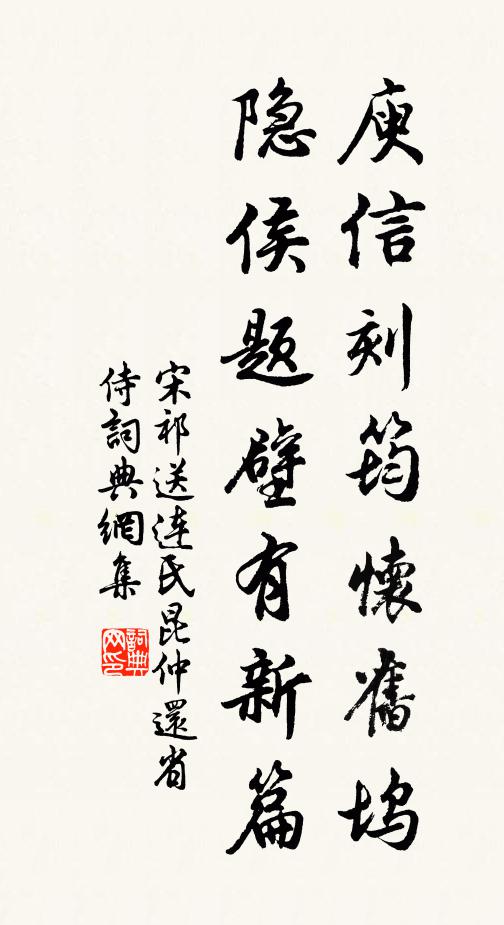 庾信刻筠懷舊塢
隐侯题壁有新篇
宋祁送連氏昆仲還省
侍詞典網集
詞典网印